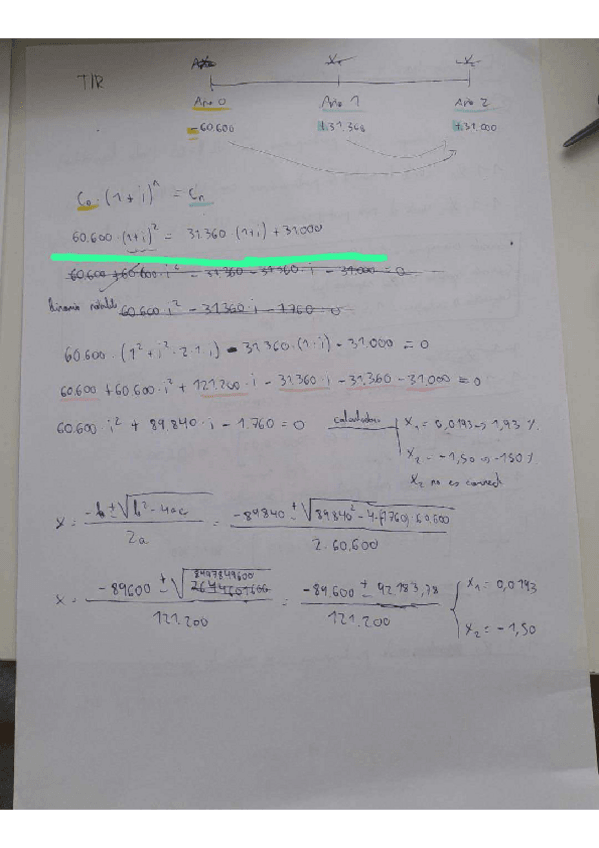 TIR
Año 0 Año 1 Año 2
-60.600 +31.360 +31.000
C₀ · (1 + i)ⁿ = Cₙ
60.600 · (1+i)² = 31.360 · (1+i) + 31.000
60.600 + 60.600 · i² - 31360 - 31360 · i - 31.000 = 0
Binomio notable 60.600 i² - 31360 · i - 1760 = 0
60.600 · (1² + i² · 2 · 1 · i) - 31.360 · (1 · i) - 31.000 = 0
60.600 + 60.600 · i² + 121.200 · i - 31.360 · i - 31.360 - 31.000 = 0
60.600 · i² + 89.840 · i - 1.760 = 0 calculadora X₁ = 0,0193 => 1,93 %
X₂ = -1,50 => -150 %
X₂ no es correct
x = -b ± √b² - 4ac / 2a = -89840 ± √89840² - 4·(-1760)·60.600 / 2·60.600
x = -89600 ± √8497849600 / 121.200 = -89.600 ± 92.183,78 / 121.200 X₁ = 0,0193
X₂ = -1,50